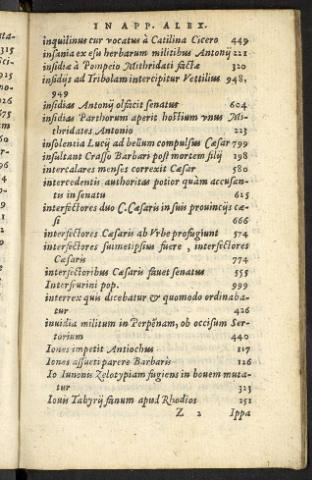 IN APP. ALEX.
inquilinus cur vocatus à Catilina Cicero 449
insania ex esu herbarum militibus Antonij 221
insidiæ à Pompeio Mithridati factæ 320
insidijs ad Tribolam intercipitur Vettilius 948,
949
insidias Antonij olfacit senatus 604
insidias Parthorum aperit hostium vnus Mi-
thridates Antonio 223
insolentia Lucij ad bellum compulsus Cæsar 799
insultant Crasso Barbari post mortem filij 198
intercalares menses correxit Cæsar 580
intercedentis authoritas potior quàm accusan-
tis in senatu 615
interfectores duo C. Cæsaris in suis prouincijs cæ-
si 666
interfectores Cæsaris ab Vrbe profugiunt 574
interfectores suimetipsius fuere, interfectores
Cæsaris 774
interfectoribus Cæsaris fauet senatus 555
Interfrurini pop. 999
interrex quis dicebatur & quomodo ordinaba-
tur 426
inuidia militum in Perpẽnam, ob occisum Ser-
torium 440
Iones impetit Antiochus 117
Iones assueti parere Barbaris 126
Io Iunonis Zelotypiam fugiens in bouem muta-
tur 323
Iouis Tabyrij fanum apud Rhodios 251
Z 2 Ippa